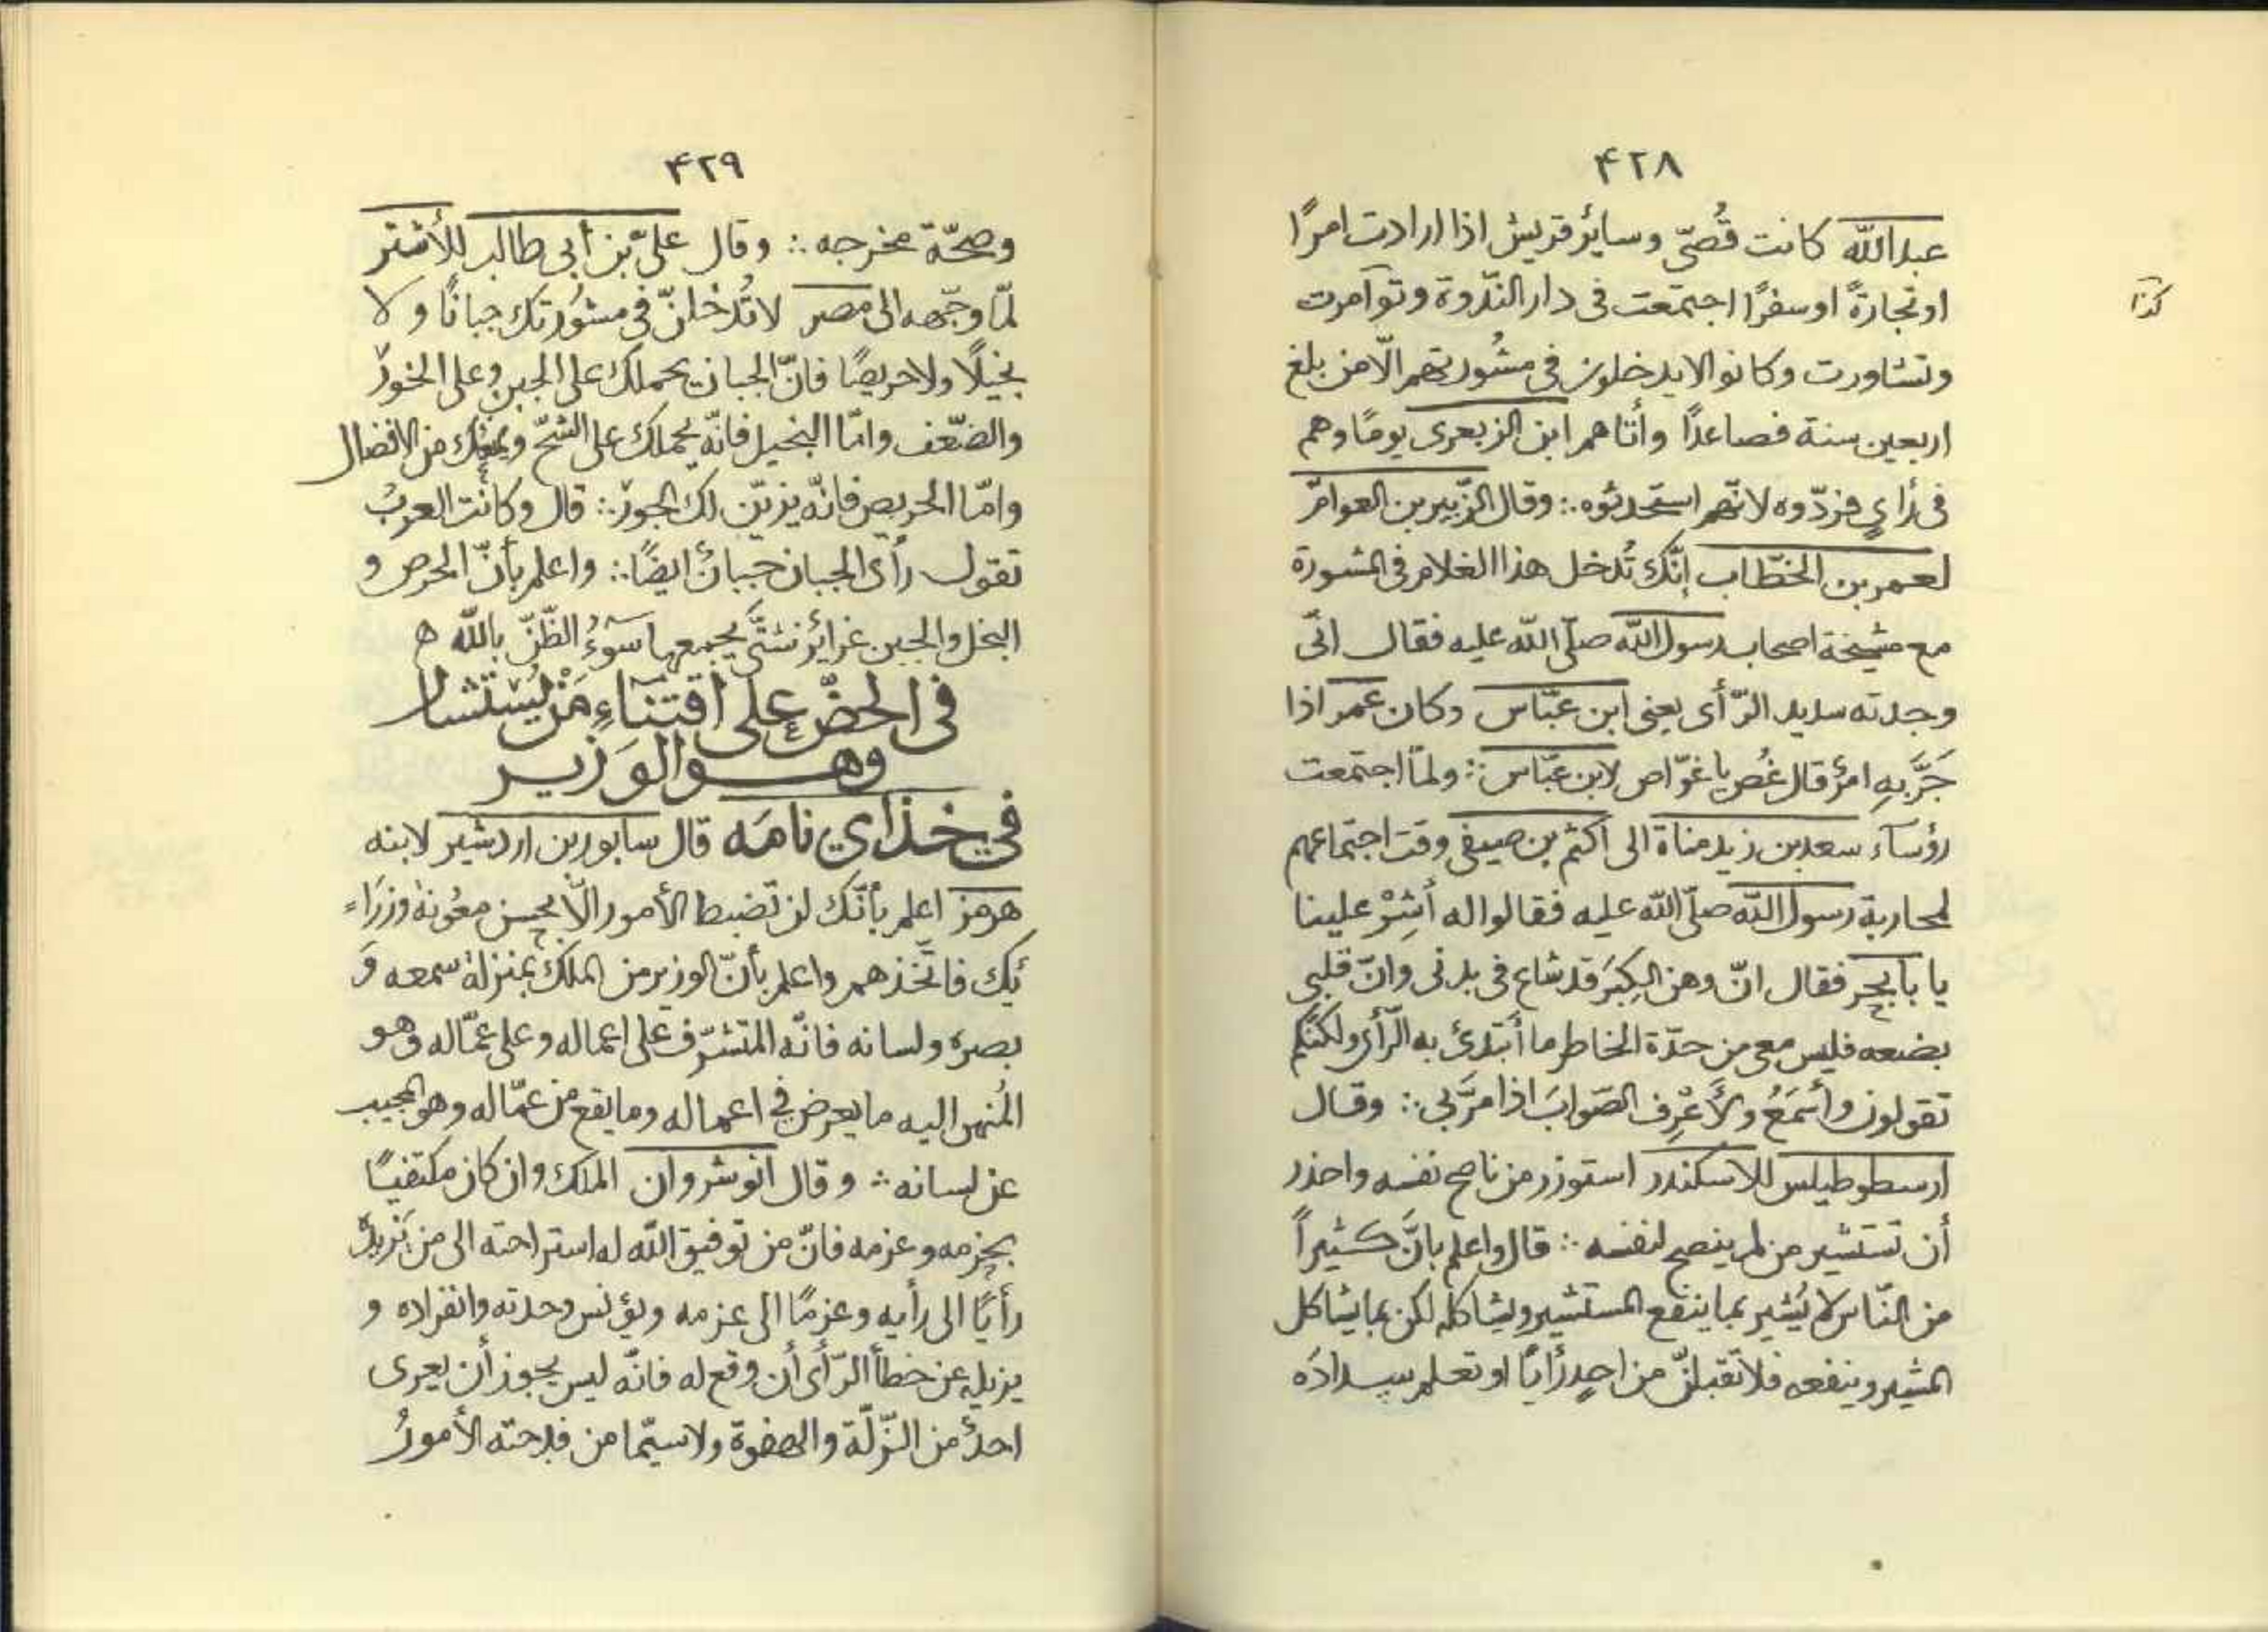 ۴۲۸
عبدالله كانت قُصىّ وسائر قريش اذا ارادت امرًا
او تجارةً او سفرًا اجتمعت فى دار النّدوة وتوآمرت
كذا
وتشاورت وكانوا لا يدخلون فى مشُورتهم الّا من بلغ
اربعين سنة فصاعدًا وأتاهم ابن الزبعرى يومًا وهم
فى رأىٍ فردّوه لانّهم استحدثوه ∴ وقال الزّبير بن العوامّ
لعمر بن الخطّاب إنّك تُدخل هذا الغلام فى المشورة
مع مشيخة اصحاب رسول الله صلّى الله عليه فقال انّى
وجدته سديد الرّأى يعنى ابن عبّاس وكان عمر اذا
حَزَّبهِ امرٌ قال غُص يا غوّاص لابن عبّاس ∴ ولمّا اجتمعت
رؤسآء سعد بن زيد مناة الى اكثم بن صيفى وقت اجتماعهم
لمحاربة رسول الله صلّى الله عليه فقالوا له أَشِرْ علينا
يا با بحر فقال انّ وهن الكِبَر قد شاع فى بدنى وانّ قلبى
بضعه فليس معى من حدّة الخاطر ما أبتدئ به الرّأى ولكنّكم
تقولون وأسمَعُ ولأَعْرِف الصّوابَ اذا مرّ بى ∴ وقال
ارسطوطيلس للاسكندر استوزر من ناصح نفسه واحذر
أن تستشير من لم ينصح لنفسه ∴ قال واعلم بانَّ كثيرًا
من النّاس لا يُشير بما ينفع المستشير ويشاكله لكن بما يشاكل
المشير وينفعه فلا تقبلنّ من احدٍ رأيًا او تعلم سدادَه
۴۲۹
وصحّة مخرجه ∴ وقال علىّ بن أبى طالب للأشتر
لمّا وجّهه الى مصر لا تُدخلنّ فى مشورتك جبانًا ولا
بخيلًا ولا حريصًا فانّ الجبان يحملك على الجبن وعلى الخور
والضّعف وامّا البخيل فانّه يحملك على الشحّ ويمنعك من الافضال
وامّا الحريص فانّه يزيّن لك الجور ∴ قال وكانت العربُ
تقول رأى الجبان جبانٌ ايضًا ∴ واعلم بأنّ الحرص و
البخل والجبن غرايز شتّى يجمعها سوءُ الظّنّ بالله ه
فى الحضّ على اقتناءِ مَنْ يُستشار
وهو الوَزير
فى خذاى نامَه قال سابور بن اردشير لابنه
هرمز اعلم بأنّك لن تضبط الأمور الّا بحسن معُونة وزرَاء
ئك فاتّخذهم واعلم بأنّ الوزير من الملك بمنزلة سمعه وَ
بصره ولسانه فانّه المتشرّف على اعماله وعلى عمّاله وهو
المُنهى اليه ما يعرض فى اعماله وما يقع من عمّاله وهو المجيب
عن لسانه ∴ وقال انوشروان الملك وان كان مكتفيًا
بحزمه وعزمه فانّ من توفيق الله له استراحته الى من يزيدُ
رأيًا الى رأيه وعزمًا الى عزمه ويؤنس وحدته وانفراده و
يزيله عن خطأ الرّأى أن وقع له فانّه ليس يجوز أن يعرى
احدٌ من الزّلّة والهفوة ولا سيّما من فدحته الأمورُ